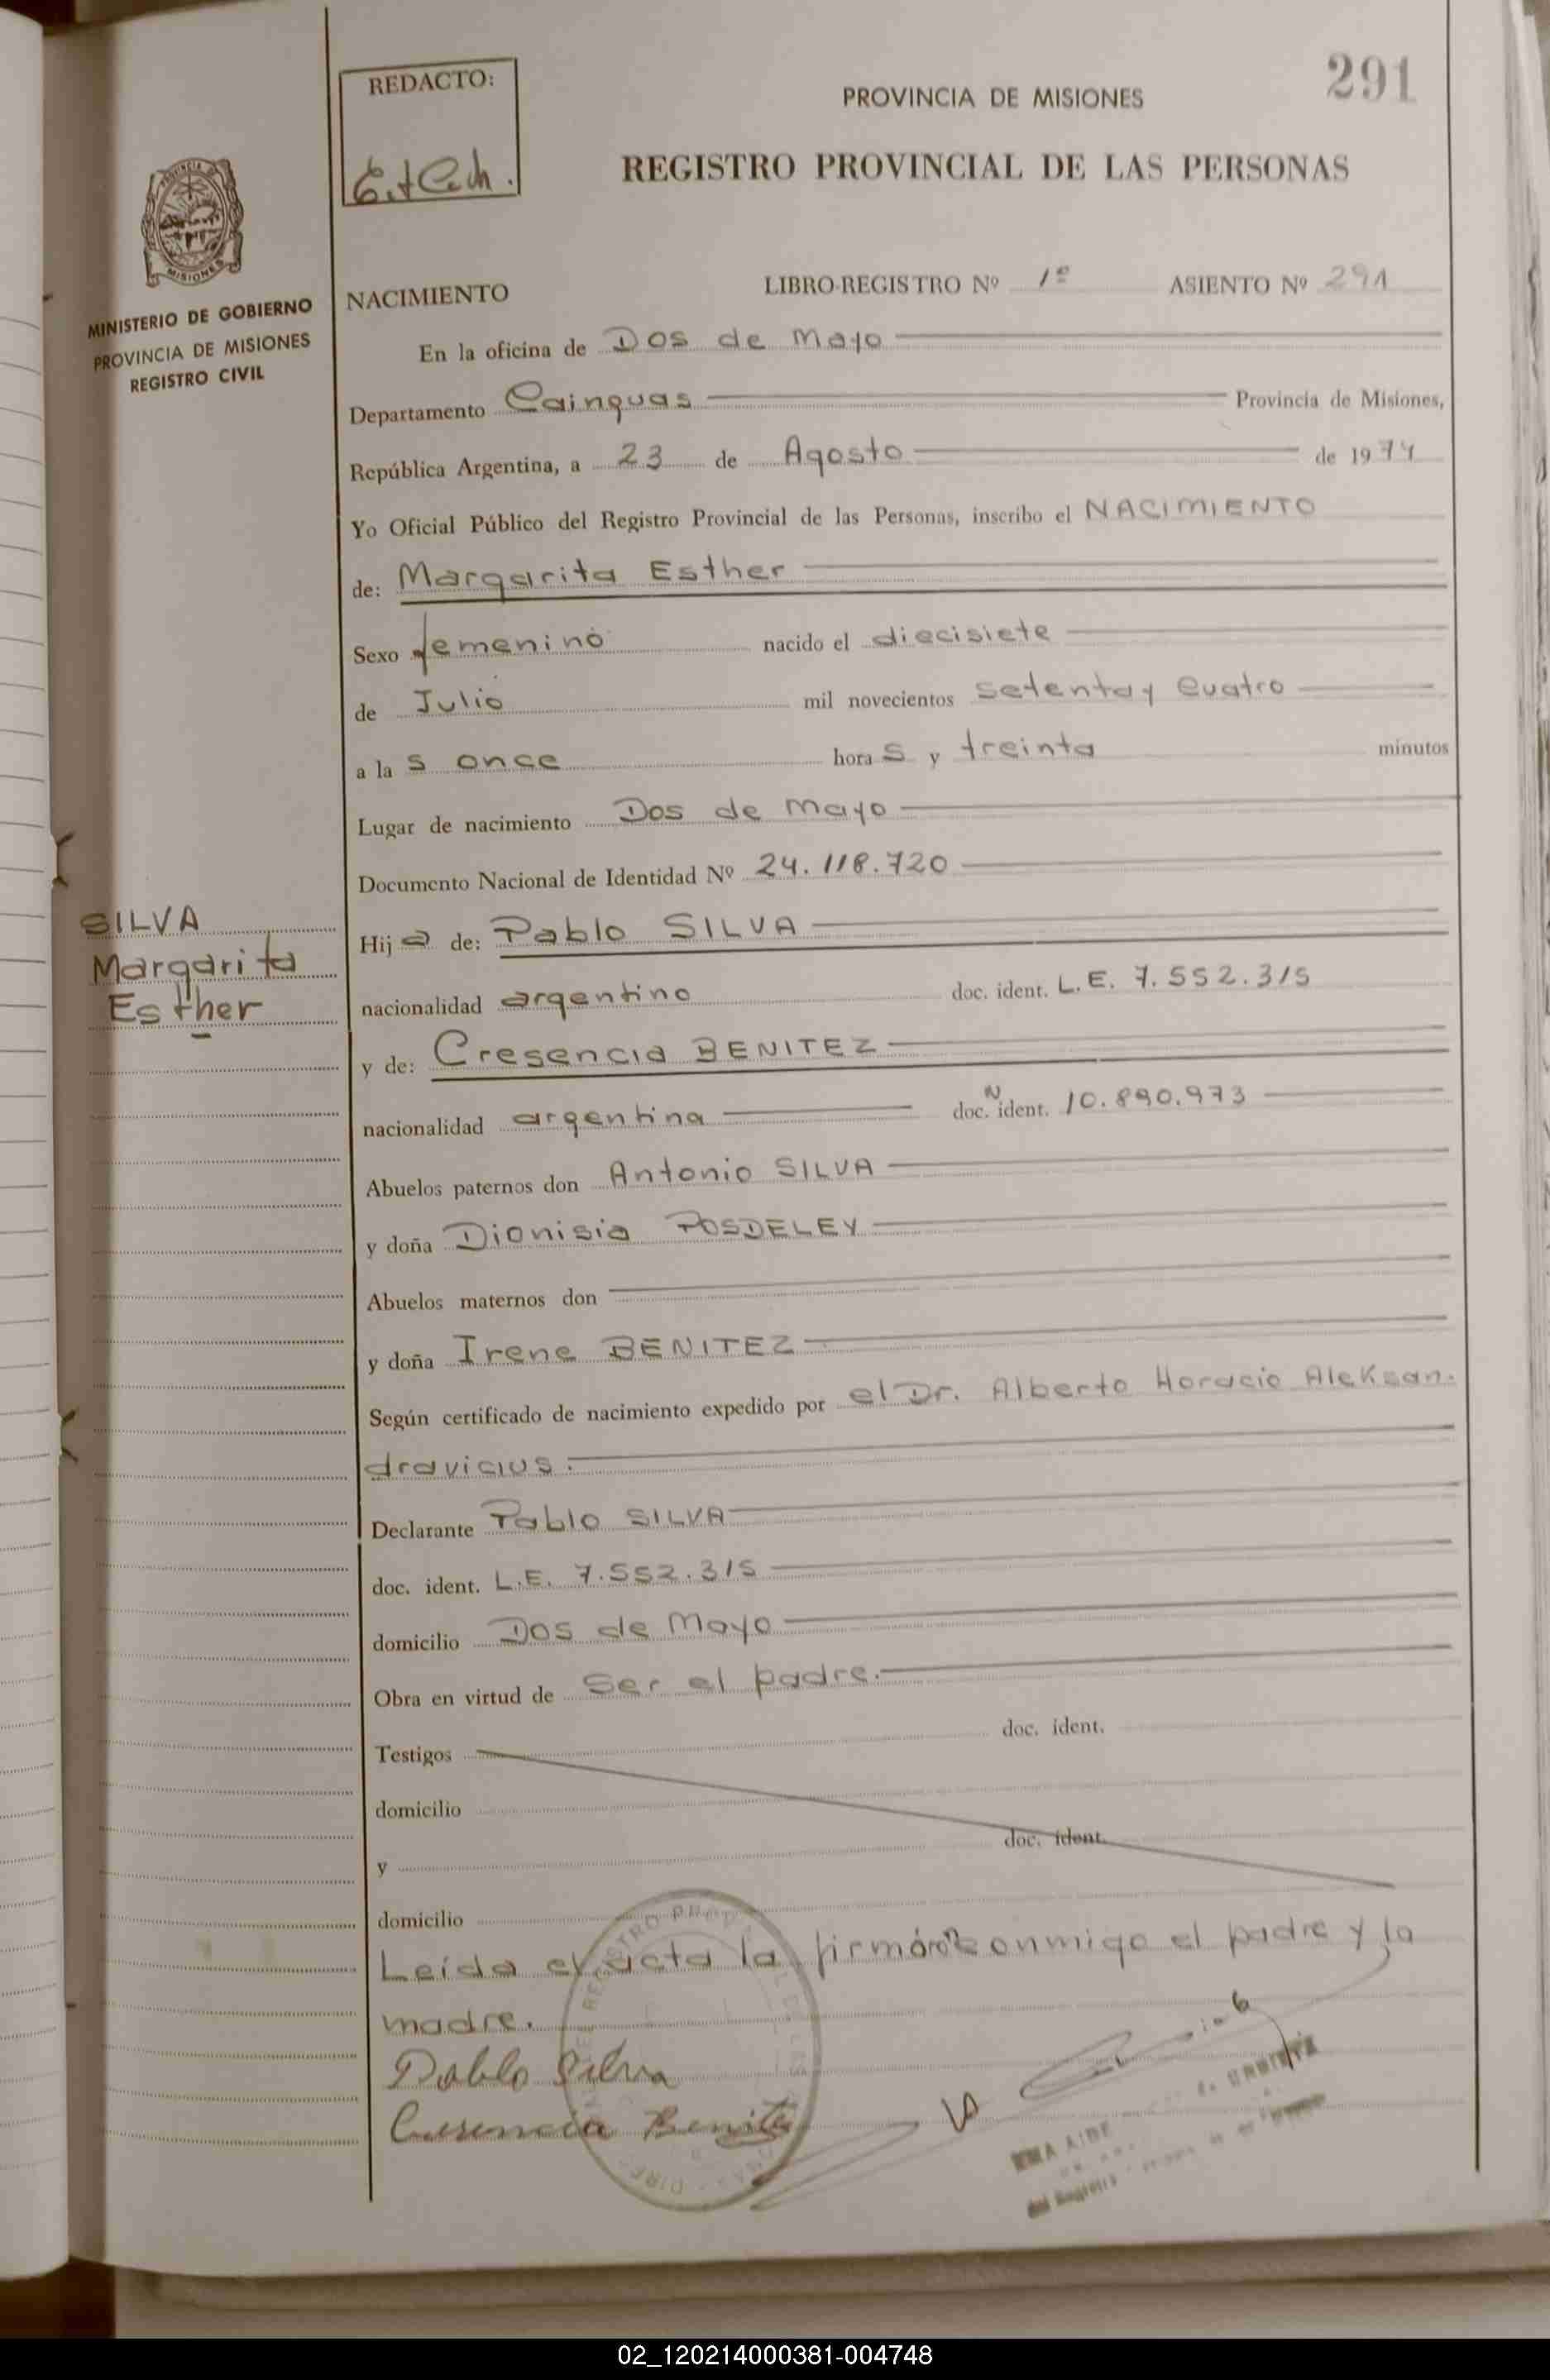 291
REDACTO:
PROVINCIA DE MISIONES
REGISTRO PROVINCIAL DE LAS PERSONAS
PROVINCIA DE
MISIONES
MINISTERIO DE GOBIERNO
PROVINCIA DE MISIONES
REGISTRO CIVIL
NACIMIENTO LIBRO-REGISTRO Nº 1º ASIENTO Nº 291
En la oficina de Dos de Mayo
Departamento Cainguas Provincia de Misiones,
República Argentina, a 23 de Agosto de 1974
Yo Oficial Público del Registro Provincial de las Personas, inscribo el NACIMIENTO
de: Margarita Esther
Sexo femenino nacido el diecisiete
de Julio mil novecientos setenta y cuatro
a la s once hora s y treinta minutos
Lugar de nacimiento Dos de Mayo
Documento Nacional de Identidad Nº 24.118.720
SILVA
Margarita
Esther
Hij a de: Pablo SILVA
nacionalidad argentino doc. ident. L.E. 7.552.315
y de: Cresencia BENITEZ
nacionalidad argentina doc. N ident. 10.890.973
Abuelos paternos don Antonio SILVA
y doña Dionisia POSDELEY
Abuelos maternos don
y doña Irene BENITEZ
Según certificado de nacimiento expedido por el Dr. Alberto Horacio Aleksan-
dravicius.
Declarante Pablo SILVA
doc. ident. L.E. 7.552.315
domicilio Dos de Mayo
Obra en virtud de ser el padre.
Testigos doc. ident.
domicilio
y doc. ident.
domicilio
Leída el acta la firmán conmigo el padre y la
madre.
Pablo Silva
Cresencia Benitez
02_120214000381-004748